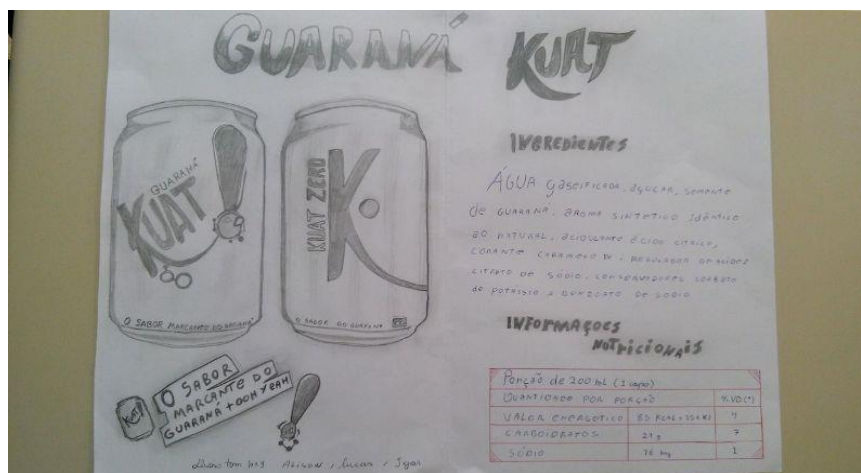 GUARANÁ
KUAT
GUARANÁ
KUAT!
O SABOR MARCANTE DO GUARANÁ
KUAT ZERO
K
O SABOR DO GUARANÁ
KUAT
O SABOR
MARCANTE DO
GUARANÁ + OOH YEAH
INGREDIENTES
ÁGUA gaseificada, açucar, semente
de GUARANÁ, aroma sintetico idântico
ao natural, acidulante ácido citrico,
corante caramelo IV, regulador de acidez
citrato de sódio, conservadores sorbato
de potássio e benzoato de sódio
INFORMAÇOES
NUTRICIONAIS
Porção de 200 ml (1 copo)
QUANTIDADE POR PORÇÃO %VD(*)
VALOR ENERGÉTICO 4
CARBOIDRATOS 21g 7
SÓDIO mg 1
Alison, Lucas, Igor